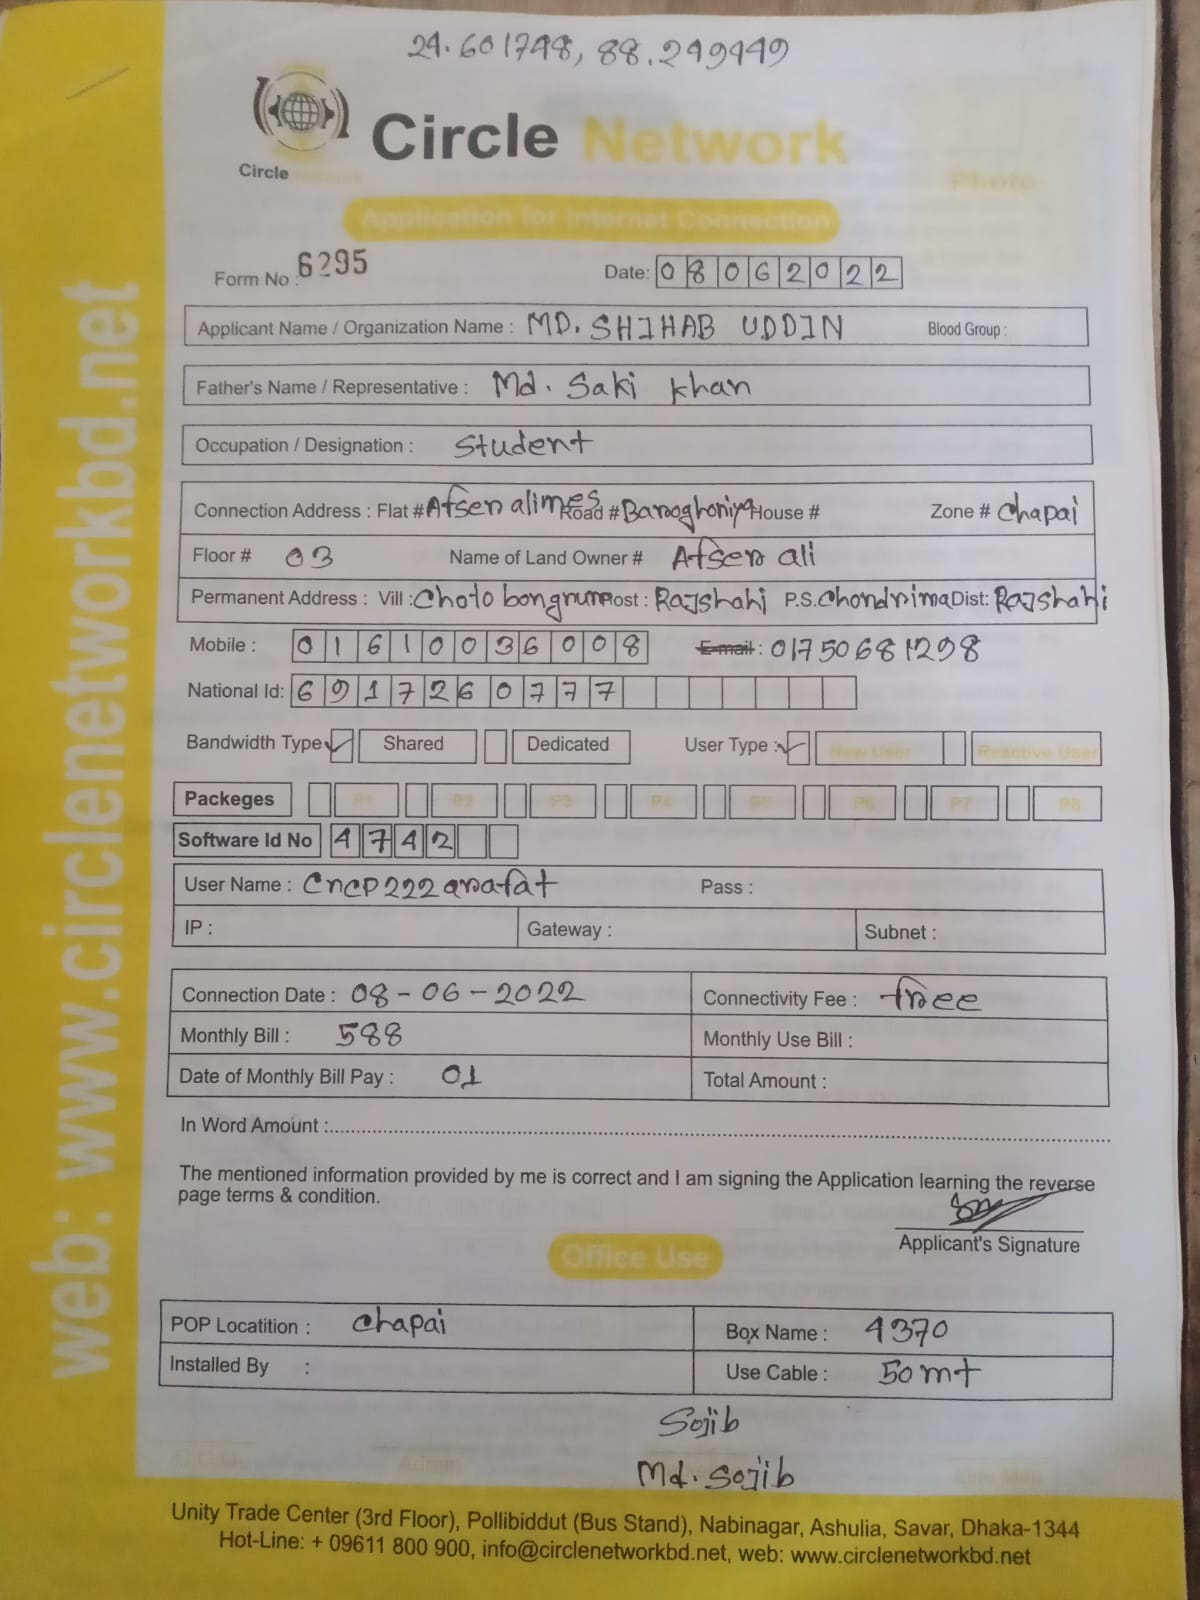 24.601748, 88.249449
Circle Network
Circle
Photo
Application for Internet Connection
Form No : 6295
Date: 08062022
Applicant Name / Organization Name : MD. SHIHAB UDDIN Blood Group :
Father's Name / Representative : Md. Saki Khan
Occupation / Designation : Student
Connection Address : Flat # Afser ali mes Road # Baroghoriya House # Zone # Chapai
Floor # 03 Name of Land Owner # Afser ali
Permanent Address : Vill : Choto bongram Post : Rajshahi P.S. Chondrima Dist: Rajshahi
Mobile : 01610036008 E-mail : 01750681298
National Id: 6917260777
Bandwidth Type Shared Dedicated User Type : New User Reactive User
Packeges P1 P2 P3 P4 P5 P6 P7 P8
Software Id No 4742
User Name : cncp222arafat Pass :
IP : Gateway : Subnet :
Connection Date : 08-06-2022 Connectivity Fee : free
Monthly Bill : 588 Monthly Use Bill :
Date of Monthly Bill Pay : 01 Total Amount :
In Word Amount :
The mentioned information provided by me is correct and I am signing the Application learning the reverse
page terms & condition.
Applicant's Signature
Office Use
POP Locatition : Chapai Box Name : 4370
Installed By : Use Cable : 50 mt
Sojib
Md. Sojib
Admin
Unity Trade Center (3rd Floor), Pollibiddut (Bus Stand), Nabinagar, Ashulia, Savar, Dhaka-1344
Hot-Line: + 09611 800 900, info@circlenetworkbd.net, web: www.circlenetworkbd.net
web: www.circlenetworkbd.net